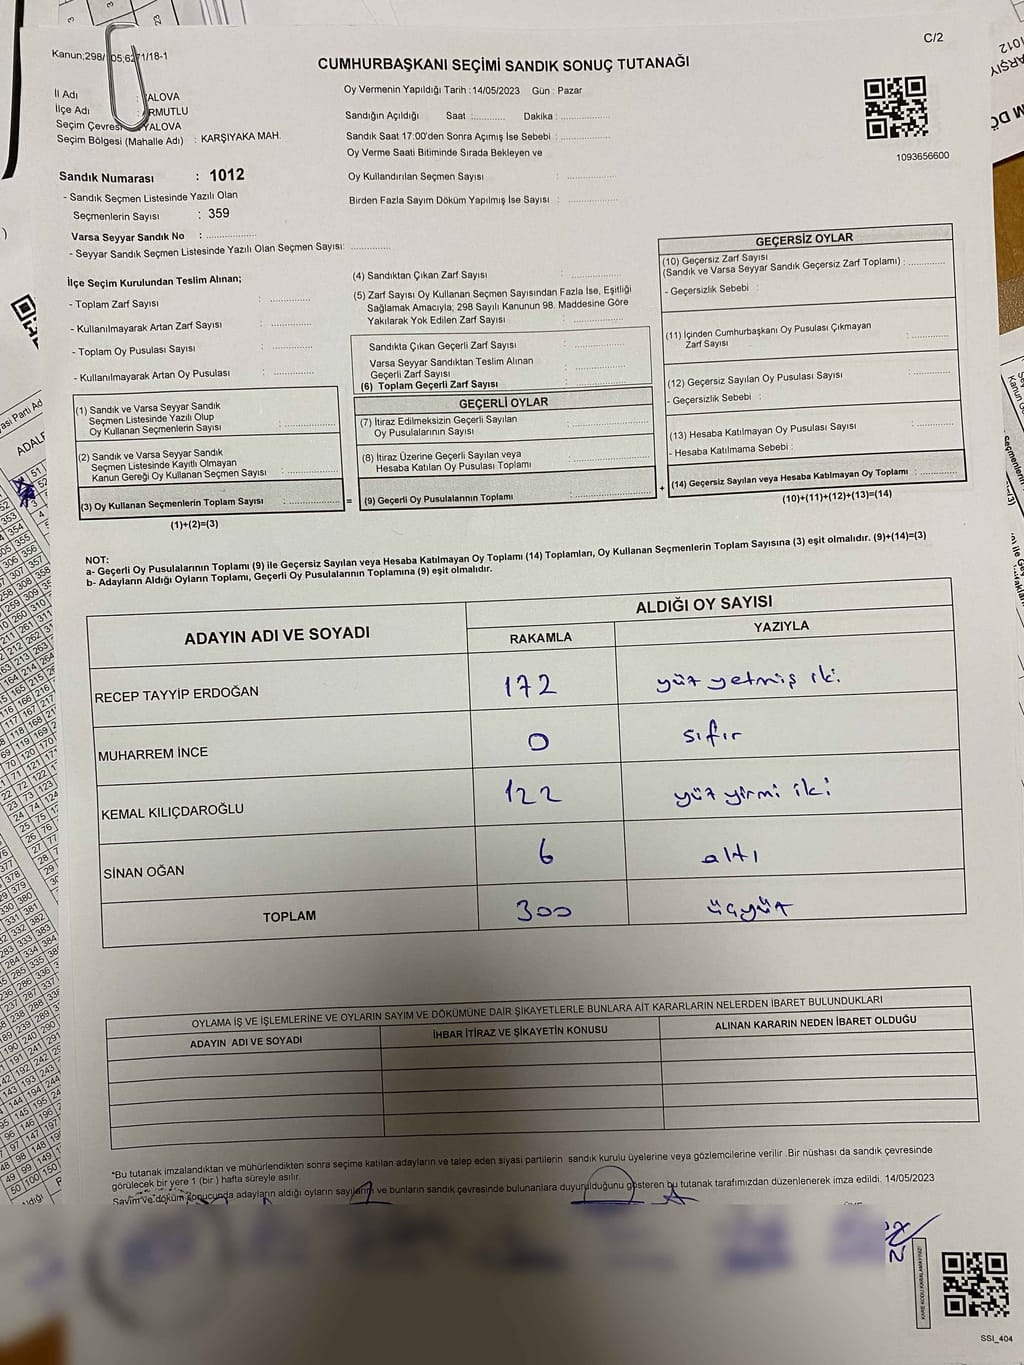 C/2
Kanun;298/ 05;6271/18-1
CUMHURBAŞKANI SEÇİMİ SANDIK SONUÇ TUTANAĞI
İl Adı : YALOVA
İlçe Adı : ARMUTLU
Seçim Çevresi YALOVA
Seçim Bölgesi (Mahalle Adı) : KARŞIYAKA MAH.
Oy Vermenin Yapıldığı Tarih :14/05/2023 Gün : Pazar
Sandığın Açıldığı Saat :........... Dakika : ................
Sandık Saat 17:00'den Sonra Açımış İse Sebebi : ................
Oy Verme Saati Bitiminde Sırada Bekleyen ve
Oy Kullandırılan Seçmen Sayısı : ................
Birden Fazla Sayım Döküm Yapılmış İse Sayısı : ................
1093656600
Sandık Numarası : 1012
- Sandık Seçmen Listesinde Yazılı Olan
Seçmenlerin Sayısı : 359
Varsa Seyyar Sandık No : ................
- Seyyar Sandık Seçmen Listesinde Yazılı Olan Seçmen Sayısı: .............
İlçe Seçim Kurulundan Teslim Alınan;
- Toplam Zarf Sayısı : .............
- Kullanılmayarak Artan Zarf Sayısı : .............
- Toplam Oy Pusulası Sayısı : .............
- Kullanılmayarak Artan Oy Pusulası : .............
(1) Sandık ve Varsa Seyyar Sandık
Seçmen Listesinde Yazılı Olup
Oy Kullanan Seçmenlerin Sayısı : ................
(2) Sandık ve Varsa Seyyar Sandık
Seçmen Listesinde Kayıtlı Olmayan
Kanun Gereği Oy Kullanan Seçmen Sayısı : ................
(3) Oy Kullanan Seçmenlerin Toplam Sayısı : ................
(1)+(2)=(3)
=
(4) Sandıktan Çıkan Zarf Sayısı : ................
(5) Zarf Sayısı Oy Kullanan Seçmen Sayısından Fazla İse, Eşitliği
Sağlamak Amacıyla; 298 Sayılı Kanunun 98. Maddesine Göre
Yakılarak Yok Edilen Zarf Sayısı : ................
Sandıkta Çıkan Geçerli Zarf Sayısı : ................
Varsa Seyyar Sandıktan Teslim Alınan
Geçerli Zarf Sayısı : ................
(6) Toplam Geçerli Zarf Sayısı : ................
GEÇERLİ OYLAR
(7) İtiraz Edilmeksizin Geçerli Sayılan
Oy Pusulalarının Sayısı : ................
(8) İtiraz Üzerine Geçerli Sayılan veya
Hesaba Katılan Oy Pusulası Toplamı : ................
(9) Geçerli Oy Pusulalarının Toplamı : ................
+
GEÇERSİZ OYLAR
(10) Geçersiz Zarf Sayısı
(Sandık ve Varsa Seyyar Sandık Geçersiz Zarf Toplamı) : .............
- Geçersizlik Sebebi :
(11) İçinden Cumhurbaşkanı Oy Pusulası Çıkmayan
Zarf Sayısı : .............
(12) Geçersiz Sayılan Oy Pusulası Sayısı : .............
- Geçersizlik Sebebi :
(13) Hesaba Katılmayan Oy Pusulası Sayısı : .............
- Hesaba Katılmama Sebebi :
(14) Geçersiz Sayılan veya Hesaba Katılmayan Oy Toplamı : .............
(10)+(11)+(12)+(13)=(14)
NOT:
a- Geçerli Oy Pusulalarının Toplamı (9) ile Geçersiz Sayılan veya Hesaba Katılmayan Oy Toplamı (14) Toplamları, Oy Kullanan Seçmenlerin Toplam Sayısına (3) eşit olmalıdır. (9)+(14)=(3)
b- Adayların Aldığı Oyların Toplamı, Geçerli Oy Pusulalarının Toplamına (9) eşit olmalıdır.
ADAYIN ADI VE SOYADI
ALDIĞI OY SAYISI
RAKAMLA YAZIYLA
RECEP TAYYİP ERDOĞAN 172 yüz yetmiş iki
MUHARREM İNCE 0 sıfır
KEMAL KILIÇDAROĞLU 122 yüz yirmi iki
SİNAN OĞAN 6 altı
TOPLAM 300 üçyüz
OYLAMA İŞ VE İŞLEMLERİNE VE OYLARIN SAYIM VE DÖKÜMÜNE DAİR ŞİKAYETLERLE BUNLARA AİT KARARLARIN NELERDEN İBARET BULUNDUKLARI
ADAYIN ADI VE SOYADI İHBAR İTİRAZ VE ŞİKAYETİN KONUSU ALINAN KARARIN NEDEN İBARET OLDUĞU
*Bu tutanak imzalandıktan ve mühürlendikten sonra seçime katılan adayların ve talep eden siyasi partilerin sandık kurulu üyelerine veya gözlemcilerine verilir .Bir nüshası da sandık çevresinde
görülecek bir yere 1 (bir ) hafta süreyle asılır.
Sayım ve döküm sonucunda adayların aldığı oyların sayılarını ve bunların sandık çevresinde bulunanlara duyurulduğunu gösteren bu tutanak tarafımızdan düzenlenerek imza edildi. 14/05/2023
KARE KODU KARALAMAYINIZ!
SSI_404